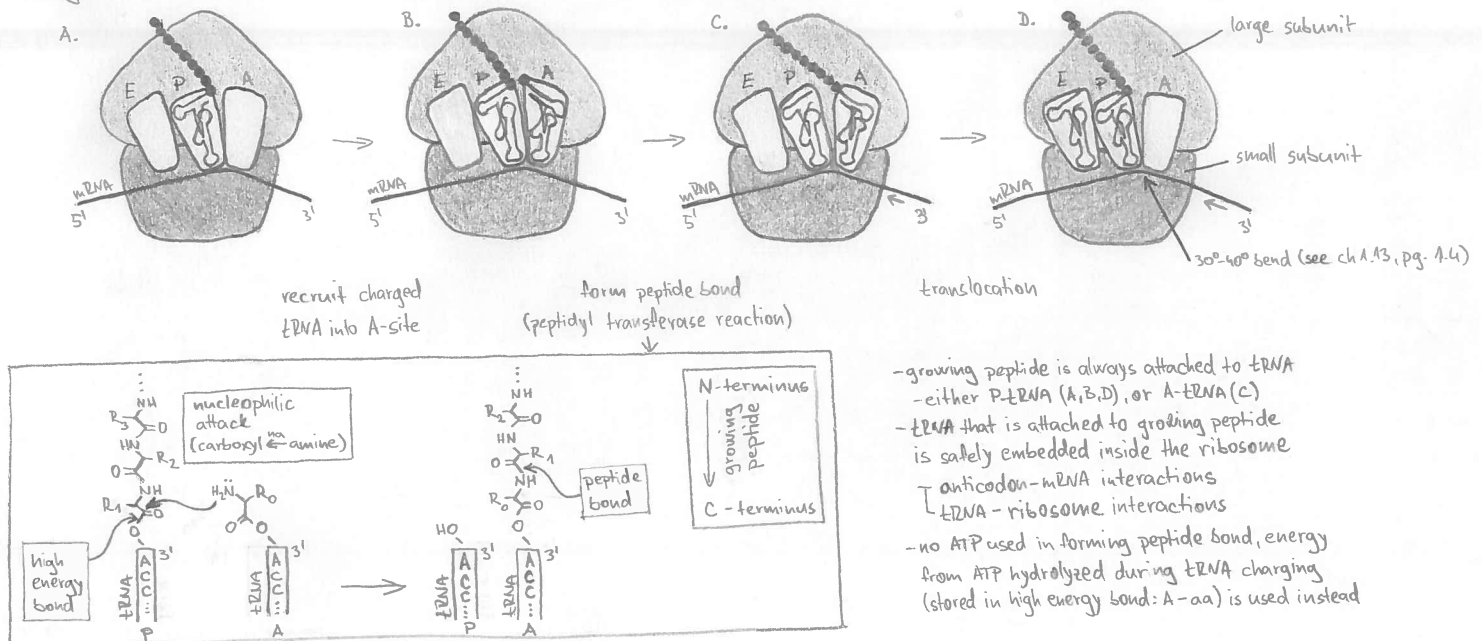 A.
B.
C.
D.
large subunit
E P A
E P A
E P A
E P A
small subunit
mRNA
5' 3'
mRNA
5' 3'
mRNA
5' 3'
mRNA
5' 3'
30°-40° bend (see ch 1.13, pg. 1.4)
recruit charged
tRNA into A-site
form peptide bond
(peptidyl transferase reaction)
translocation
nucleophilic
attack
(carboxyl ←na amine)
NH
R3 O
HN R2
O
NH
R1 O
O
H2N̈ R0
O O
high
energy
bond
3'
A
C
C
...
tRNA
P
3'
A
C
C
...
tRNA
A
NH
R2 O
HN R1
O
NH
R0 O
O
peptide
bond
HO
3'
A
C
C
...
tRNA
P
3'
A
C
C
...
tRNA
A
N-terminus
growing
peptide
C-terminus
-growing peptide is always attached to tRNA
-either P-tRNA (A,B,D), or A-tRNA (C)
-tRNA that is attached to growing peptide
is safely embedded inside the ribosome
anticodon-mRNA interactions
tRNA-ribosome interactions
-no ATP used in forming peptide bond, energy
from ATP hydrolyzed during tRNA charging
(stored in high energy bond: A-aa) is used instead